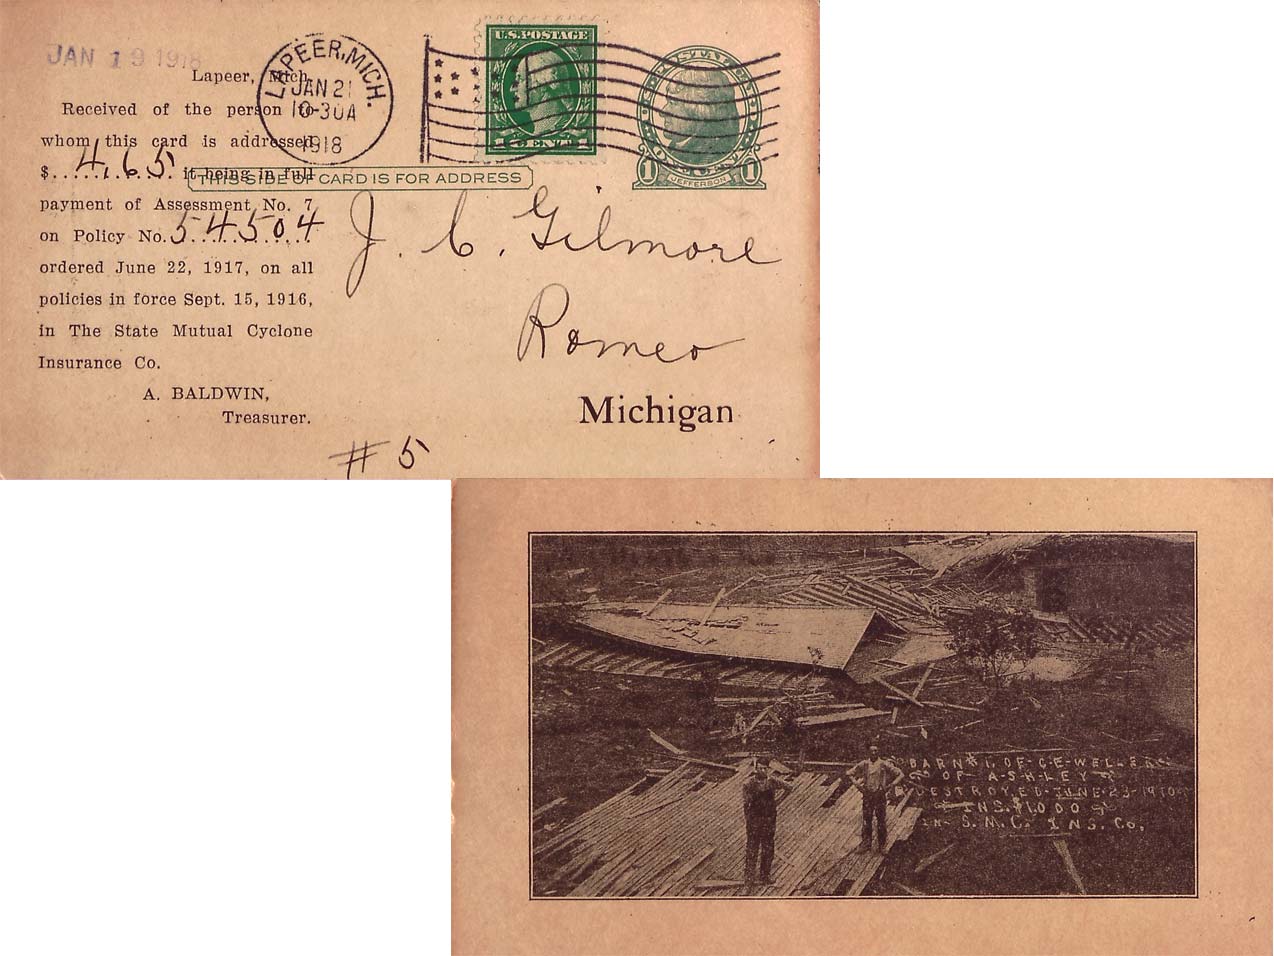 JAN 19 1918
Lapeer, Mich.
Received of the person to
whom this card is addressed
$ 4.65 it being in full
payment of Assessment No. 7
on Policy No. 54504
ordered June 22, 1917, on all
policies in force Sept. 15, 1916,
in The State Mutual Cyclone
Insurance Co.
A. BALDWIN,
Treasurer.
# 5
LAPEER, MICH.
JAN 21
10-30A
1918
U.S. POSTAGE
1 CENT 1
1 JEFFERSON 1
THIS SIDE OF CARD IS FOR ADDRESS
J. C. Gilmore
Romeo
Michigan
BARN #1. OF C-E-WELLER
OF A-S-H-LEY
DESTROYED-JUNE-23-1910
INS. $1000
IN S. M. C. INS. Co.